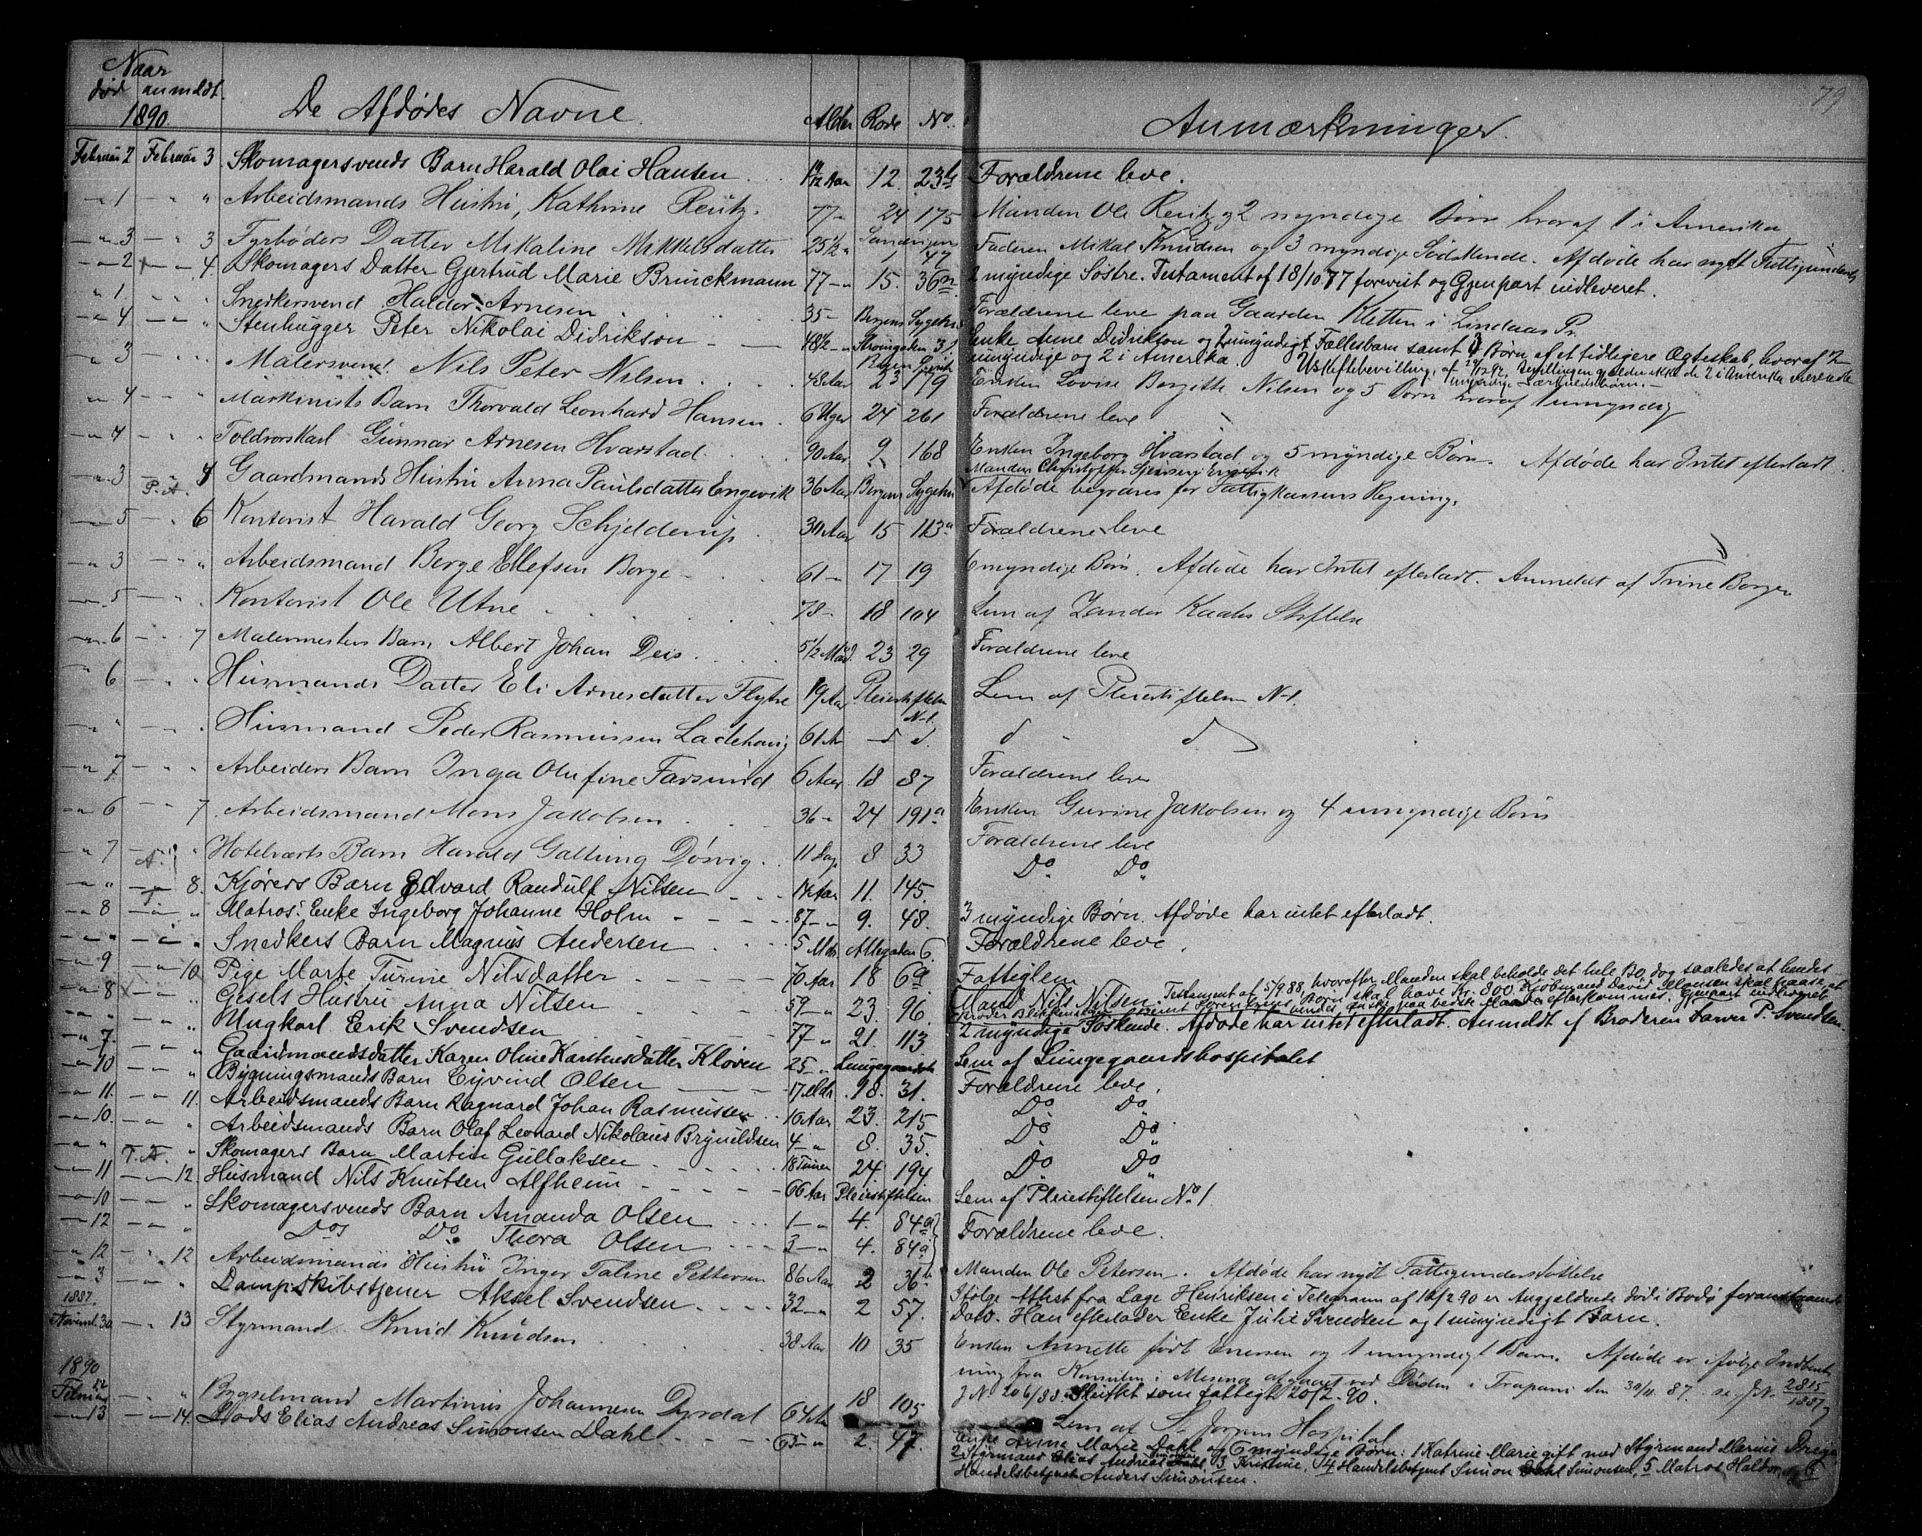 79
Naar
død anmeldt. De Afdødes Navne. Alder Rode No. Anmærkninger.
1890.
Februar 2 Februar 3 Skomagersvends Barn Harald Olai Hansen 12 Aar 12. 23 Forældrene leve.
" 1 " " Arbeidsmands Hustru, Kathrine Reutz 77 " 24 175 Manden Ole Reutz og 2 myndige Børn hvoraf 1 i Amerika
" 3 " 3 Fyrbøders Datter Mikaline Mikkelsdatter 25 1/2 " 47 Faderen Mikal Knudsen og 3 myndige Sødskende. Afdøde har nydt Fattigunderst.
" 2 " 4 Skomagers Datter Gjertrud Marie Brunckmann 77 " 15. 36 2 myndige Søstre. Testament af 18/10 77 forevist og Gjenpart indleveret.
" 1 " " Snedkersvend Haldor Arnesen 35 " Bergens Sygehus Forældrene leve paa Gaarden Kletten i Lindaas Pr.
" 4 " " Stenhugger Peter Nikolai Didrikson 48 1/2 " Strømgaden 31 Enke Anne Didrikson og umyndigt Fællesbarn samt Børn af et tidligere Ægteskab hvoraf 2
umyndige og 2 i Amerika. Uskiftebevilling af
" 3 " " Malersvend Nils Peter Nilsen 48 Aar 23 179 Enken Lovise Bergitte Nilsen og 5 Børn hvoraf 1 umyndig
" 4 " " Maskinists Barn Thorvald Leonhard Hansen 6 Uger 24 261 Forældrene leve
" 4 " " Toldrorskarl Gunnar Arnesen Hvarstad 90 Aar 9 168 Enken Ingeborg Hvarstad og 5 myndige Børn. Afdøde har Intet efterladt.
Manden Christoffer Engevik
" 3 P.A. 4 Gaardmands Hustru Anna Paulsdatter Engevik 36 Aar Bergens Sygehus Afdøde begraves for Fattigkassens Regning.
" 5 " 6 Kontorist Harald Georg Schjelderup 30 Aar 15 113a Forældrene leve
" 3 " " Arbeidsmand Berge Ellefsen Borge 61 " 17 19 6 myndige Børn. Afdøde har Intet efterladt. Anmeldt af Trine Borge
" 5 " " Kontorist Ole Utne 78 " 18 104 Lem af Zander Kaaes Stiftelse
" 6 " 7 Malermesters Barn Albert Johan Deis 5 1/2 Maa. 23 29 Forældrene leve
" 6 " " Husmands Datter Eli Arnesdatter Flytre 19 Aar Pleiestiftelsen No 1. Lem af Pleiestiftelsen No 1.
" " " Husmand Peder Rasmussen Ladehaug 61 A d d. d - d
" 7 " " Arbeiders Barn Inga Olufine Farsund 6 Aar 18 87 Forældrene leve
" 6 " 7 Arbeidsmand Mons Jakobsen 36 " 24 191a Enken Gurine Jakobsen og 4 umyndige Børn
" 7 " " Hotelværts Barn Harald Galtung Døsvig 11 Dage 8 33 Forældrene leve
" " " 8. Kjørers Barn Edvard Randulf Nilsen 14 Aar 11. 145. Do. Do.
" 8 " " Matros' Enke Ingeborg Johanne Holm 87 " 9. 48. 3 myndige Børn. Afdøde har intet efterladt.
" " " " Snedkers Barn Magnus Andersen 5 Mdr Allegaden 6. Forældrene leve.
" 9 " 10. Pige Marte Turine Nilsdatter 70 Aar 18 69 Fattiglem
" 8 " " Gjæsels Hustru Anna Nilsen 59 " 23. 96. Mand Nils Nilsen. Testament af 5/9 88, hvorefter Manden skal beholde det hele Bo, dog saaledes at hendes
" " " " Murkarl Erik Svendsen 77 " 21. 113 2 myndige Søskende. Afdøde har intet efterladt. Anmeldt af Broderen Svendsen.
" 7. " " Gaardmandsdatter Karen Oline Karstensdatter Kloven 25 " Lungegaardsh. Lem af Lungegaardshospitalet
" 10 " " Bygningsmands Barn Eyvind Olsen 17 Mdr. 18. 31. Forældrene leve.
" 11. " 11. Arbeidsmands Barn Ragnard Johan Rasmussen 10 Aar 23. 215 Do. Do.
" 10. " " Arbeidsmands Barn Olaf Leonard Nikolaus Bryneldsen 4 " 8. 35. Do. Do.
" " T.A. " Skomagers Barn Martin Gullaksen 18 Timer 24. 194 Do. Do.
" 11 " 12. Husmand Nils Knutsen Alfheim 66 Aar Pleiestiftelsen Lem af Pleiestiftelsen No. 1
" 10 " " Skomagersvends Barn Amanda Olsen 1 " 4. 84a Forældrene leve.
" 12 " " Dos Do. Thora Olsen 3 " 4. 84a
" 12 " 12 Arbeidsmands Hustru Inger Taline Pettersen 86 Aar 2 36b Manden Ole Petersen. Afdøde har nydt Fattigunderstøttelse
" 3 " " Dampskibstjener Aksel Svendsen 32 " 2 57. Ifølge Attest fra Lage Henriksen i Telegram af 12/2 90 er Angjeldende død i Bodø foranstaaende
1887. Dato. Han efterlader Enke Julie Svendsen og 1 umyndigt Barn.
Novemb. 30 " 13 Styrmand Knud Knudsen 38 Aar 10 35 Enken Annette født Enersen og 1 umyndigt Barn. Afdøde er ifølge Indberet-
ning fra Konsulen i Messina afgaaet ved Døden i Trapani den 30/11 87. se J.N. 2815/1887
J.N. 206/88. Skiftet som fattigt 20/2 90.
1890
Februar 12 " " Bygselmand Martinus Johannesen Dyrdal 64 Aar 18 105 Lem af St. Jørgens Hospital
" 13 " 14. Lods Elias Andreas Simonsen Dahl 65 " 2. 47. Enke Anne Marie Dahl og 6 myndige Børn: 1 Katrine Marie gift med Styrmand Marius
2 Styrmand Elias Andreas Dahl, 3 Kristine, 4 Handelsbetjent Simon Dahl Simonsen, 5 Matros Haldor, og 6
Handelsbetjent Anders Simonsen.